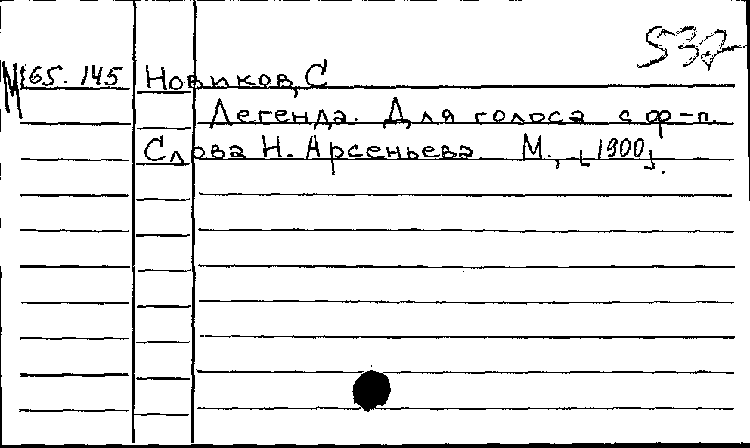 537
М165.145 Новиков, С
Легенда. Для голоса с ф-п.
Слова Н. Арсеньева. М., [1900].